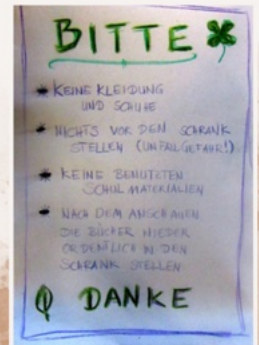 BITTE
KEINE KLEIDUNG
UND SCHUHE
NICHTS VOR DEN SCHRANK
STELLEN (UNFALLGEFAHR!)
KEINE BENUTZTEN
SCHULMATERIALIEN
NACH DEM ANSCHAUEN
DIE BÜCHER WIEDER
ORDENTLICH IN DEN
SCHRANK STELLEN
DANKE